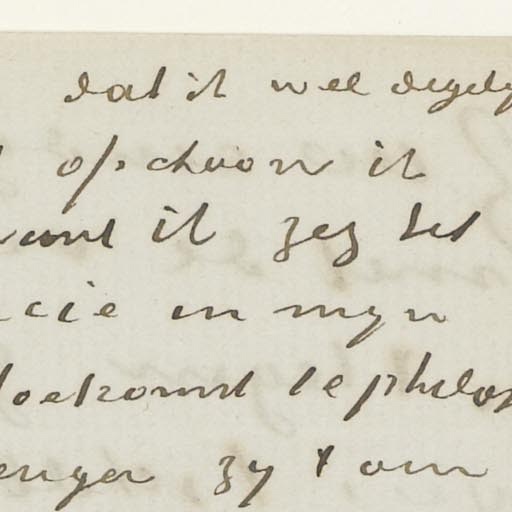 dat ik wel degely
ofschoon ik
want ik zeg het
cie in myn
toekomst te philos
enger zy t om